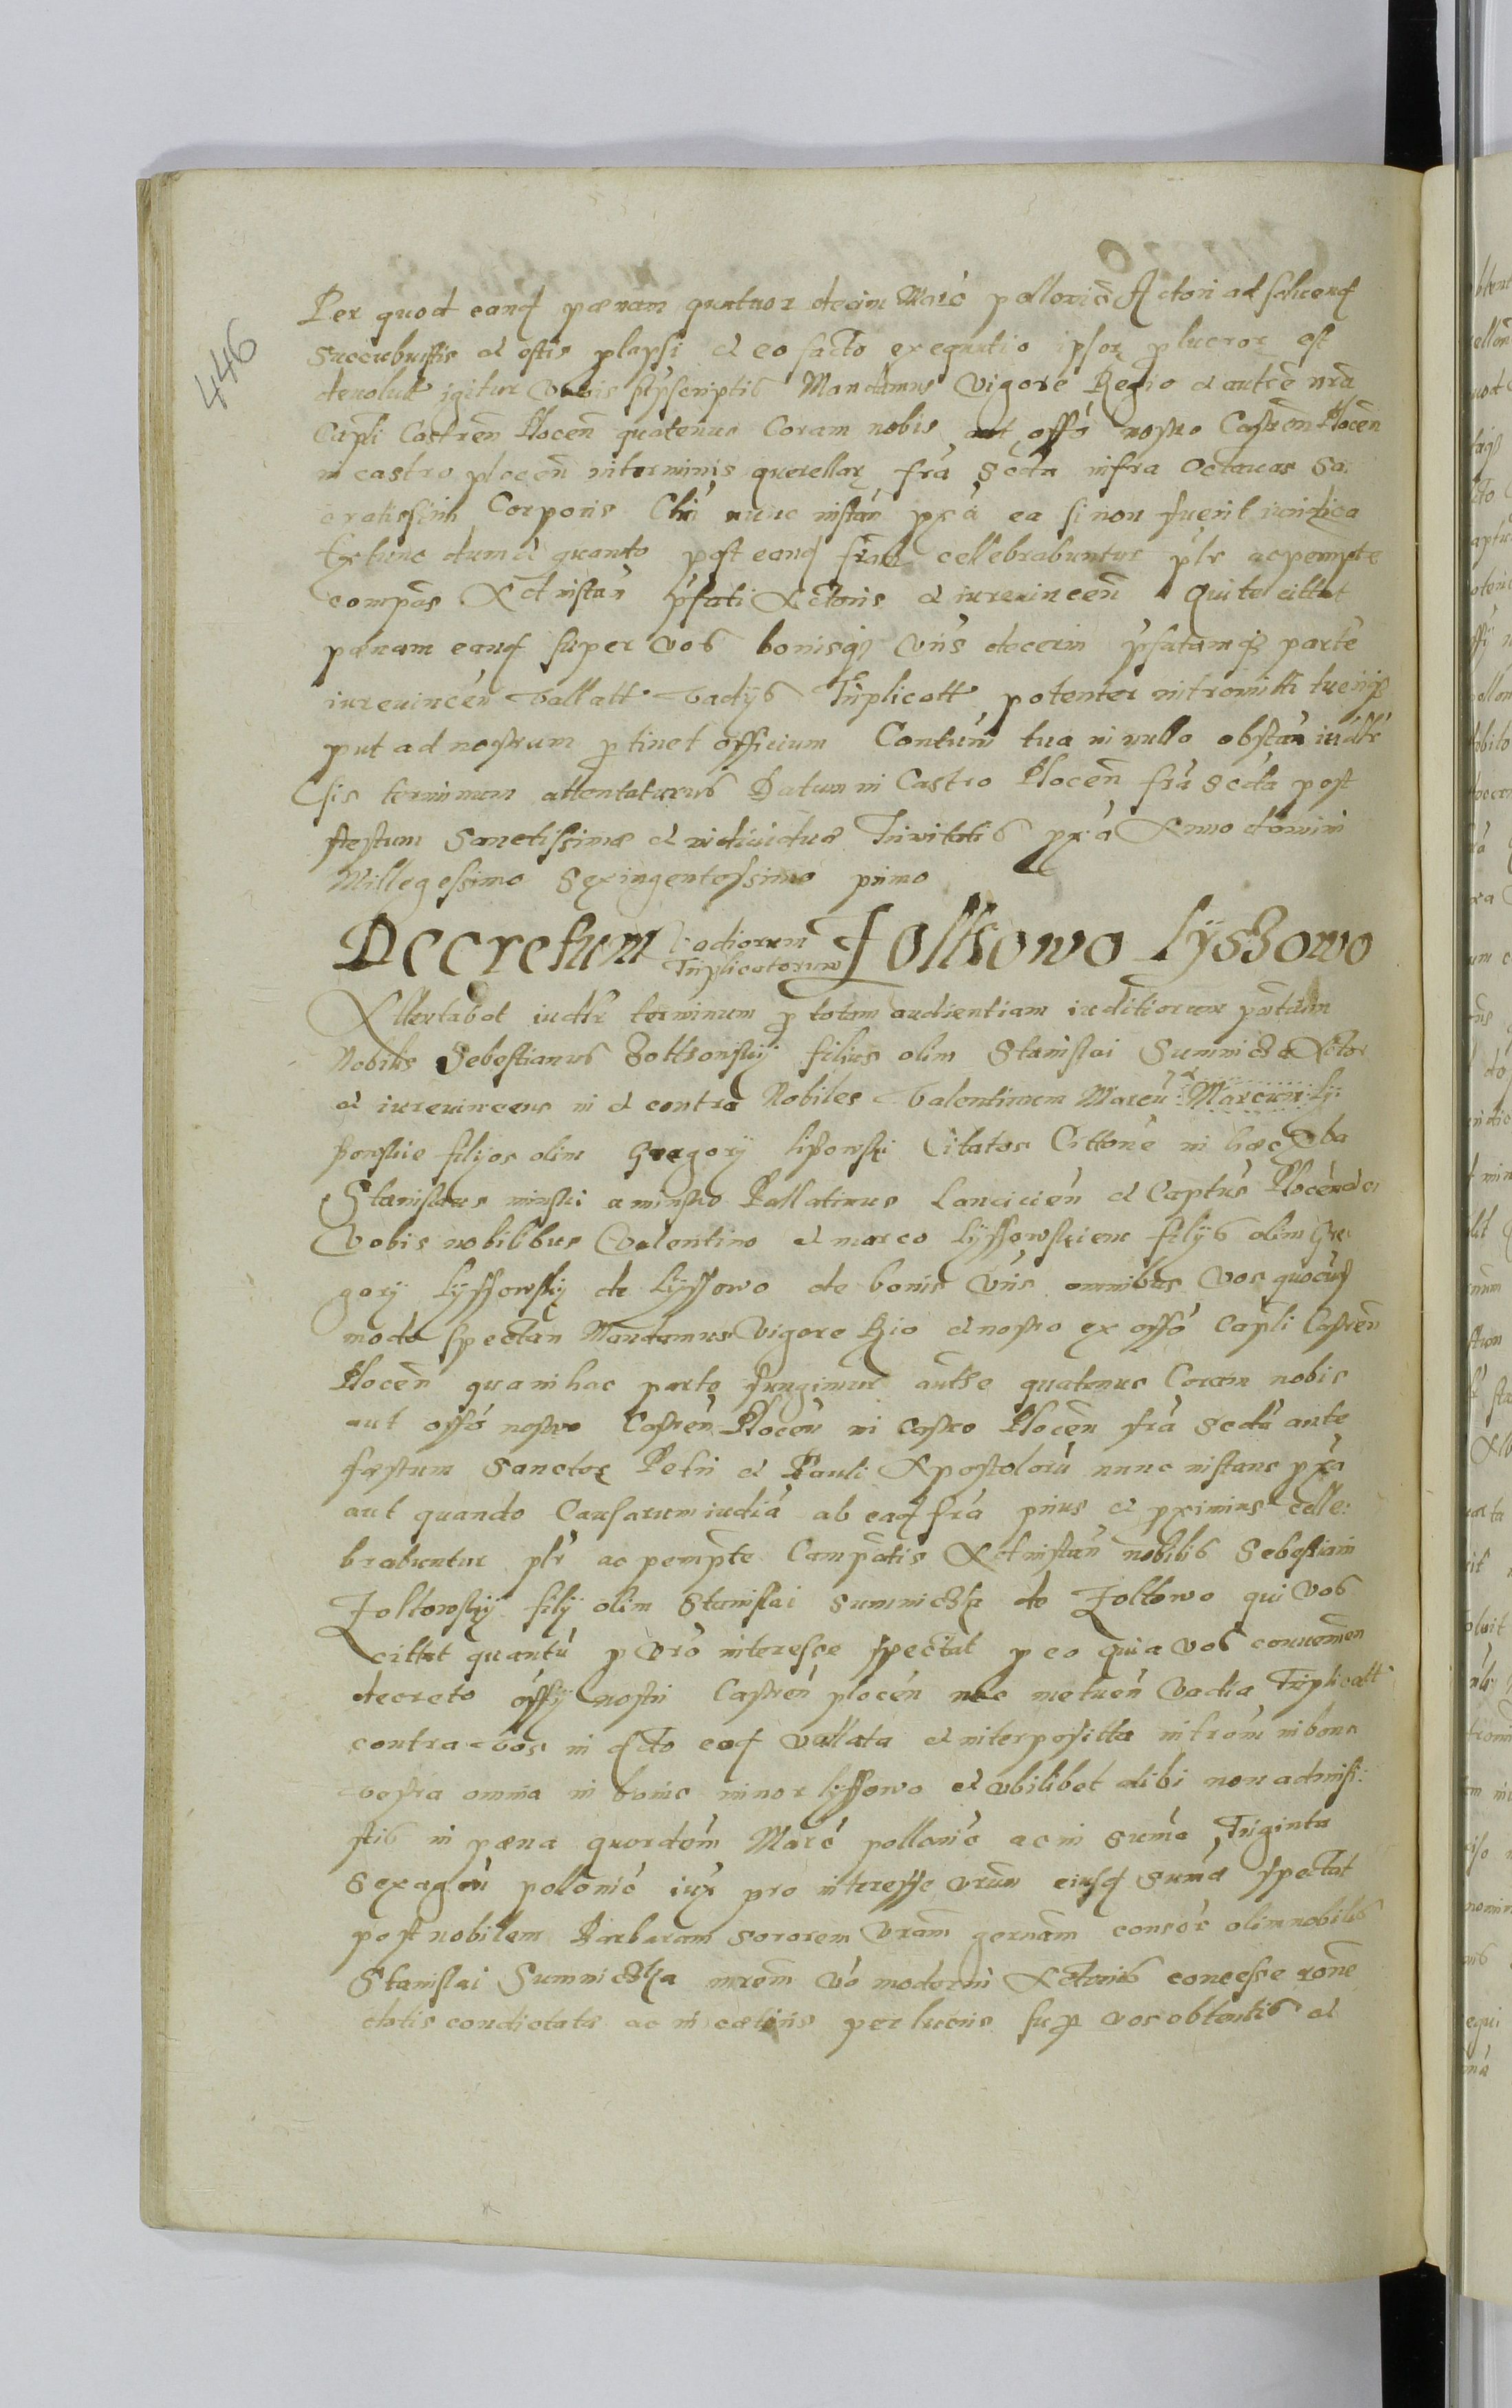 446
Per quod eand pænam quatuor decim Marc̄ pollonic̄ Actori ad solvend
Succubuistis et estis plapsi et eo facto exequutio ipsor plucror est
devolutt igitur Vobis sup̄scriptis Mandamus Vigore Regio et autte n̄ra
Cap̄li Castren̄ Plocen̄ quatenus Coram nobis aut offo nostro Castren̄ Plocen̄
in castro plocen̄ interminis querellar fr̄a Sc̄da infra Octavas Sa:
cratissimi Corporis Chri nunc instan̄ px̄a ea si non fuerit iuridica
Extunc dum et quanto post eand fr̄am cellebrabuntur plr̄ ac pempte
comp̄as Ad instan̄ p̄fati Actoris et iurevincen̄ Qui te cittat
pænam eand super vos bonisq̨ vr̄is decerni p̄fatamq̨ parte
iurevincen̄ Vallatt Vadÿs Triplicatt potenter intromitti tueriq̨
put ad nostrum ptinet officium Contum̄ tua in nullo obstan̄ iudtr̄
Sis terminum attentaturus Datum in Castro Plocen̄ fr̄a Sc̄da post
ffestum Sanctissimæ et individuæ Trinitatis px̄a Anno domini
Millegessimo Sexingentessimo primo
Decretum Vadiorum Triplicatorum Żoltowo Lÿszowo
Attentabat iudtr̄ terminum p totam audientiam iuditiorum pn̄tium
Nobilis Sebestianus Zoltkowskÿ filius olim Stanislai Sumniczka Actor
et iurevincens in et contra Nobiles Valentinum Marcū et Marcum Lÿ:
szowskie filios olim Gregorÿ Lisowski Citatos Cittone in hæc vba
Stanislaus minski a minsko Pallatinus Lanciciēn et Captus Plocen̄
Vobis nobilibus Valentino et marco Lÿssowskiem filÿs olim Gre:
gorÿ Lÿssowskÿ de Lÿssowo de bonis vr̄is omnibus Vos quocunq̨
modo Spectan̄ Mandamus Vigore Rgio et nostro ex offo Cap̄li Castren̄
Plocen̄ qua in hac parte fungimur autte quatenus Coram nobis
aut offo nostro Castren̄ Plocen̄ in Castro Plocen̄ fr̄a Sc̄da ante
ffestum Sanctor Petri et Pauli Apostolorū nunc instans px̄a
aut quando Causarum iudia ab ead fr̄a prius et px̄imius celle:
brabuntur plr̄ ac pempte Comp̄atis Ad instan̄ nobilis Sebestiani
Żoltowskÿ filÿ olim Stanislai Sumniczka de Żoltowo qui vos
cittat quantū p vr̄o interesse spectat p eo quia vos convenien̄
decreto offÿ nostri Castren̄ plocen̄ nec metuen̄ vadia Triplicatt
contra vos in dcto eod vallata et interposittа introm̄ in bona
vestra omnia in bonis minor lÿssowo et ubilibet alibi non admisi:
stis in pæna quordem̄ Marc̄ pollonic̄ ac in Sum̄a Triginta
Sexagen̄ polonic̄ iux̄ pro interesse vr̄um eiusd Sum̄æ spectat
post nobilem Barbaram sororem vr̄am german̄am consor̄ olim nobilis
Stanislai Sumniczka mr̄em v̄o moderni Actoris concesse ron̄e
dotis condictatæ ac in cæteris perlucris sup vos obtentis et